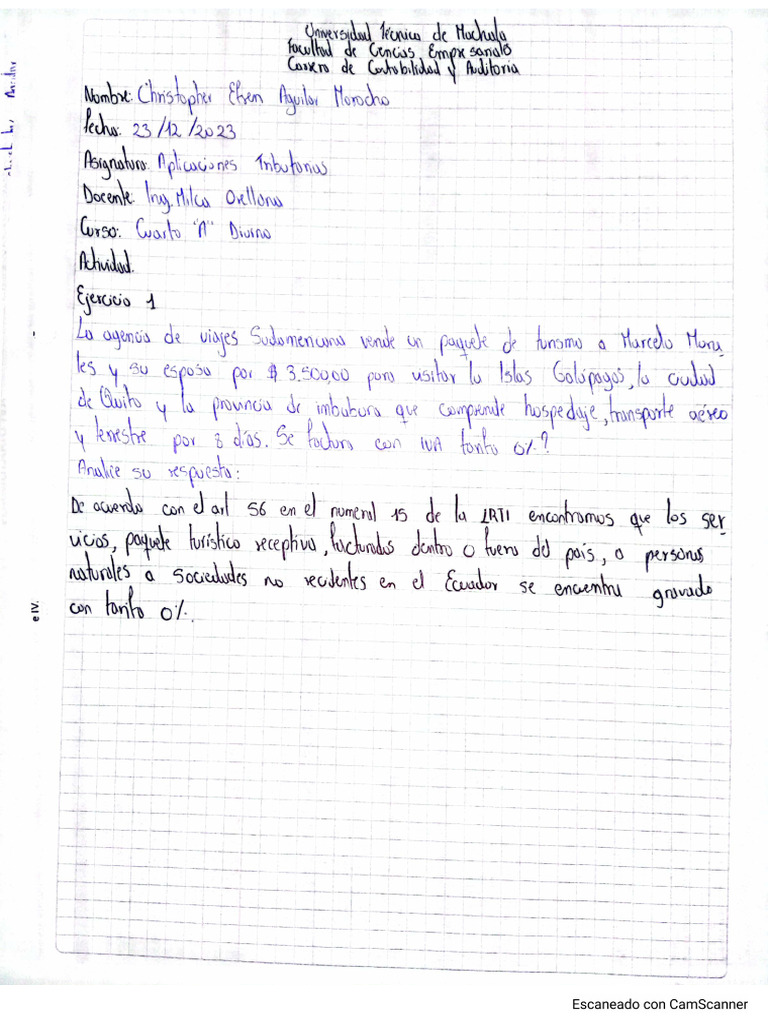 Universidad Técnica de Machala
Facultad de Ciencias Empresariales
Carrera de Contabilidad y Auditoria
Nombre: Christopher Efren Aguilar Morocho
Fecha: 23/12/2023
Asignatura: Aplicaciones Tributarias
Docente: Ing. Milca Orellana
Curso: Cuarto "A" Diurno
Actividad.
Ejercicio 1
La agencia de viajes Sudamericana vende un paquete de turismo a Marcelo Mora
les y su esposa por $ 3.500,00 para visitar la Islas Galápagos, la ciudad
de Quito y la provincia de imbabura que comprende hospedaje, transporte aéreo
y terrestre por 8 días. Se factura con IVA tarifa 0%?
Analice su respuesta:
De acuerdo con el art 56 en el numeral 15 de la LRTI encontramos que los ser
vicios, paquete turístico receptivo, facturados dentro o fuera del país, a personas
naturales a sociedades no residentes en el Ecuador se encuentra gravado
con tarifa 0%.
e IV.
Escaneado con CamScanner